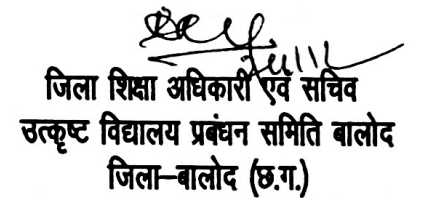 जिला शिक्षा अधिकारी एवं सचिव
उत्कृष्ट विद्यालय प्रबंधन समिति बालोद
जिला–बालोद (छ.ग.)